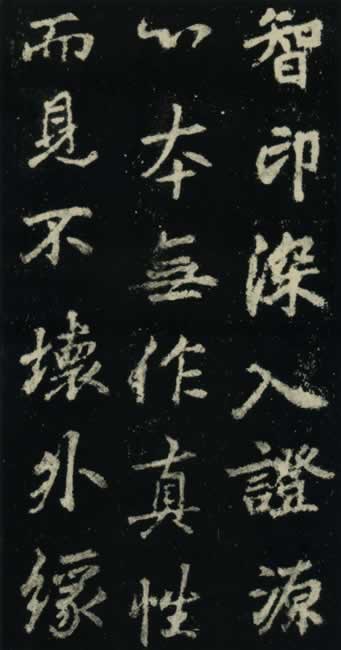 智印深入證源
心本無作真性
而見不壞外緣